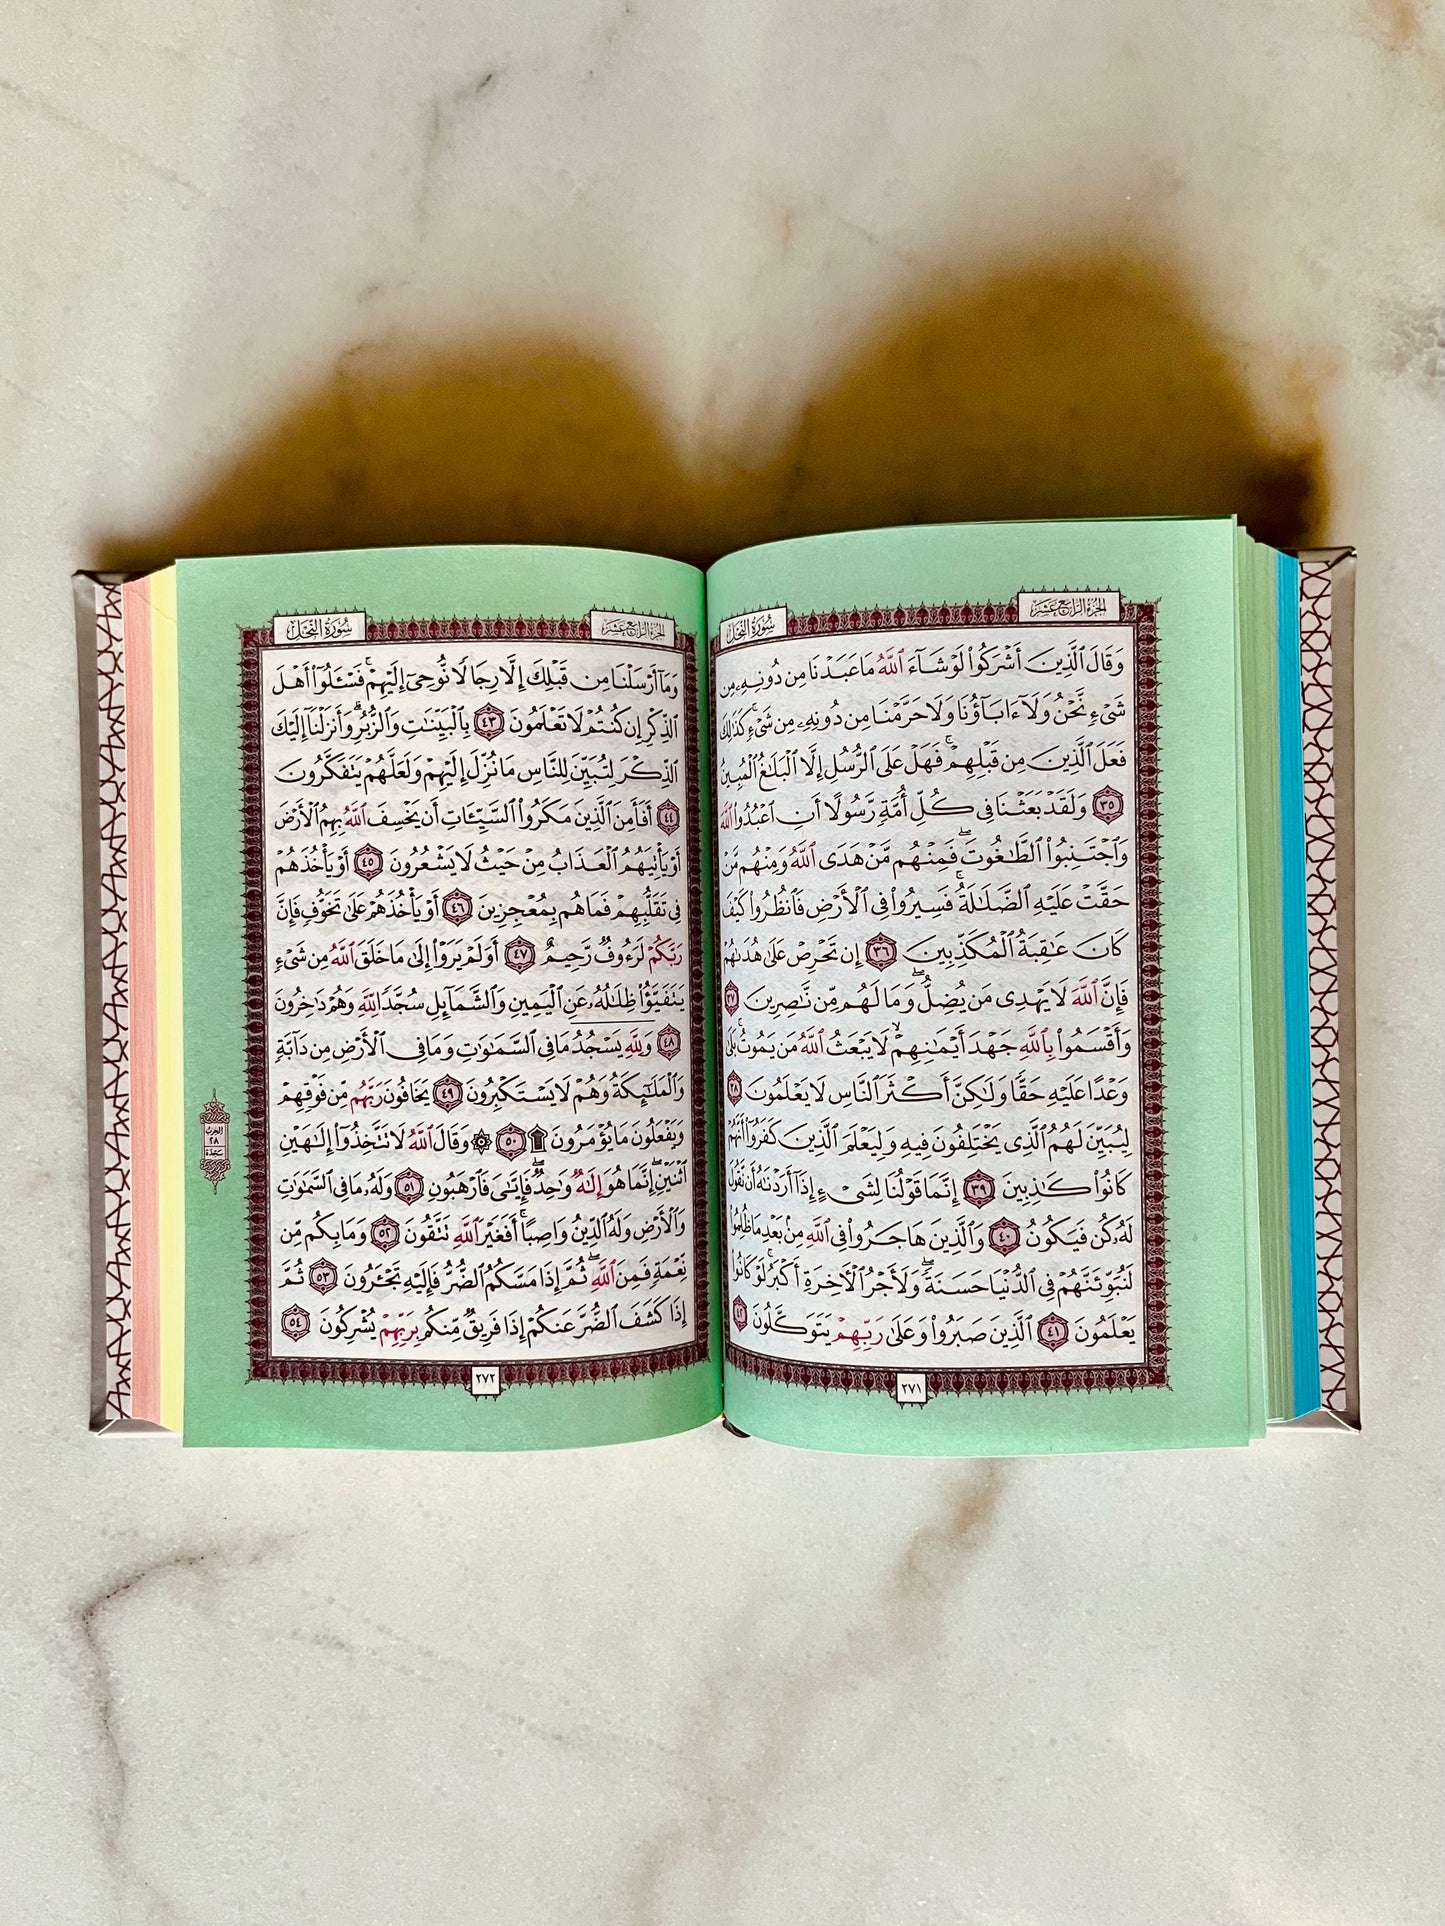 الجزء الرابع عشر
سورة النحل
وَقَالَ ٱلَّذِينَ أَشۡرَكُواْ لَوۡ شَآءَ ٱللَّهُ مَا عَبَدۡنَا مِن دُونِهِۦ مِن
شَيۡءٖ نَّحۡنُ وَلَآ ءَابَآؤُنَا وَلَا حَرَّمۡنَا مِن دُونِهِۦ مِن شَيۡءٖۚ كَذَٰلِكَ
فَعَلَ ٱلَّذِينَ مِن قَبۡلِهِمۡۚ فَهَلۡ عَلَى ٱلرُّسُلِ إِلَّا ٱلۡبَلَٰغُ ٱلۡمُبِينُ
٣٥ وَلَقَدۡ بَعَثۡنَا فِي كُلِّ أُمَّةٖ رَّسُولًا أَنِ ٱعۡبُدُواْ ٱللَّهَ
وَٱجۡتَنِبُواْ ٱلطَّٰغُوتَۖ فَمِنۡهُم مَّنۡ هَدَى ٱللَّهُ وَمِنۡهُم مَّنۡ
حَقَّتۡ عَلَيۡهِ ٱلضَّلَٰلَةُۚ فَسِيرُواْ فِي ٱلۡأَرۡضِ فَٱنظُرُواْ كَيۡفَ
كَانَ عَٰقِبَةُ ٱلۡمُكَذِّبِينَ ٣٦ إِن تَحۡرِصۡ عَلَىٰ هُدَىٰهُمۡ
فَإِنَّ ٱللَّهَ لَا يَهۡدِي مَن يُضِلُّۖ وَمَا لَهُم مِّن نَّٰصِرِينَ ٣٧
وَأَقۡسَمُواْ بِٱللَّهِ جَهۡدَ أَيۡمَٰنِهِمۡ لَا يَبۡعَثُ ٱللَّهُ مَن يَمُوتُۚ بَلَىٰ
وَعۡدًا عَلَيۡهِ حَقّٗا وَلَٰكِنَّ أَكۡثَرَ ٱلنَّاسِ لَا يَعۡلَمُونَ ٣٨
لِيُبَيِّنَ لَهُمُ ٱلَّذِي يَخۡتَلِفُونَ فِيهِ وَلِيَعۡلَمَ ٱلَّذِينَ كَفَرُوٓاْ أَنَّهُمۡ
كَانُواْ كَٰذِبِينَ ٣٩ إِنَّمَا قَوۡلُنَا لِشَيۡءٍ إِذَآ أَرَدۡنَٰهُ أَن نَّقُولَ
لَهُۥ كُن فَيَكُونُ ٤٠ وَٱلَّذِينَ هَاجَرُواْ فِي ٱللَّهِ مِنۢ بَعۡدِ مَا ظُلِمُواْ
لَنُبَوِّئَنَّهُمۡ فِي ٱلدُّنۡيَا حَسَنَةٗۖ وَلَأَجۡرُ ٱلۡأٓخِرَةِ أَكۡبَرُۚ لَوۡ كَانُواْ
يَعۡلَمُونَ ٤١ ٱلَّذِينَ صَبَرُواْ وَعَلَىٰ رَبِّهِمۡ يَتَوَكَّلُونَ ٤٢
٢٧١
الجزء الرابع عشر
سورة النحل
وَمَآ أَرۡسَلۡنَا مِن قَبۡلِكَ إِلَّا رِجَالٗا نُّوحِيٓ إِلَيۡهِمۡۖ فَسۡـَٔلُوٓاْ أَهۡلَ
ٱلذِّكۡرِ إِن كُنتُمۡ لَا تَعۡلَمُونَ ٤٣ بِٱلۡبَيِّنَٰتِ وَٱلزُّبُرِۗ وَأَنزَلۡنَآ إِلَيۡكَ
ٱلذِّكۡرَ لِتُبَيِّنَ لِلنَّاسِ مَا نُزِّلَ إِلَيۡهِمۡ وَلَعَلَّهُمۡ يَتَفَكَّرُونَ
٤٤ أَفَأَمِنَ ٱلَّذِينَ مَكَرُواْ ٱلسَّيِّـَٔاتِ أَن يَخۡسِفَ ٱللَّهُ بِهِمُ ٱلۡأَرۡضَ
أَوۡ يَأۡتِيَهُمُ ٱلۡعَذَابُ مِنۡ حَيۡثُ لَا يَشۡعُرُونَ ٤٥ أَوۡ يَأۡخُذَهُمۡ
فِي تَقَلُّبِهِمۡ فَمَا هُم بِمُعۡجِزِينَ ٤٦ أَوۡ يَأۡخُذَهُمۡ عَلَىٰ تَخَوُّفٖ فَإِنَّ
رَبَّكُمۡ لَرَءُوفٞ رَّحِيمٌ ٤٧ أَوَلَمۡ يَرَوۡاْ إِلَىٰ مَا خَلَقَ ٱللَّهُ مِن شَيۡءٖ
يَتَفَيَّؤُاْ ظِلَٰلُهُۥ عَنِ ٱلۡيَمِينِ وَٱلشَّمَآئِلِ سُجَّدٗا لِّلَّهِ وَهُمۡ دَٰخِرُونَ
٤٨ وَلِلَّهِۤ يَسۡجُدُۤ مَا فِي ٱلسَّمَٰوَٰتِ وَمَا فِي ٱلۡأَرۡضِ مِن دَآبَّةٖ
وَٱلۡمَلَٰٓئِكَةُ وَهُمۡ لَا يَسۡتَكۡبِرُونَ ٤٩ يَخَافُونَ رَبَّهُم مِّن فَوۡقِهِمۡ
وَيَفۡعَلُونَ مَا يُؤۡمَرُونَ ۩ ٥٠ ۞ وَقَالَ ٱللَّهُ لَا تَتَّخِذُوٓاْ إِلَٰهَيۡنِ
ٱثۡنَيۡنِۖ إِنَّمَا هُوَ إِلَٰهٞ وَٰحِدٞ فَإِيَّٰيَ فَٱرۡهَبُونِ ٥١ وَلَهُۥ مَا فِي ٱلسَّمَٰوَٰتِ
وَٱلۡأَرۡضِ وَلَهُ ٱلدِّينُ وَاصِبًاۚ أَفَغَيۡرَ ٱللَّهِ تَتَّقُونَ ٥٢ وَمَا بِكُم مِّن
نِّعۡمَةٖ فَمِنَ ٱللَّهِۖ ثُمَّ إِذَا مَسَّكُمُ ٱلضُّرُّ فَإِلَيۡهِ تَجۡـَٔرُونَ ٥٣ ثُمَّ
إِذَا كَشَفَ ٱلضُّرَّ عَنكُمۡ إِذَا فَرِيقٞ مِّنكُم بِرَبِّهِمۡ يُشۡرِكُونَ ٥٤
الحزب
٢٨
سجدة
٢٧٢